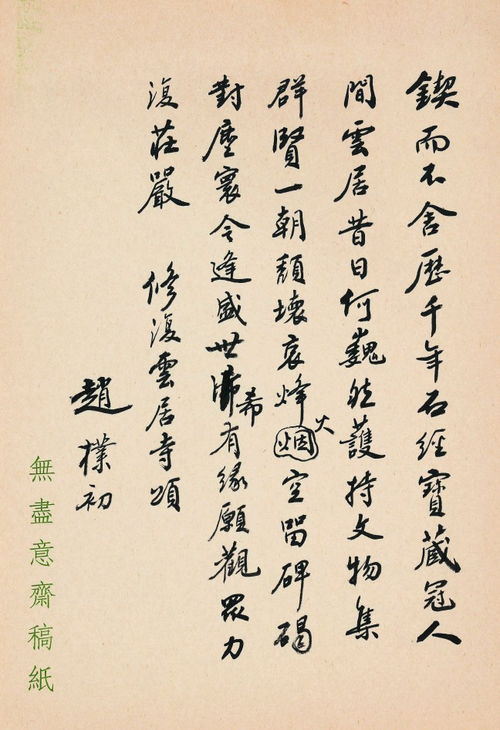 鍥而不舍歷千年石經寶藏冠人
間雲居昔日何巍然護持文物集
群賢一朝頹壞哀烽烟火空留碑碣
對塵寰今逢盛世希有緣願觀眾力
復莊嚴 修復雲居寺頌
趙樸初
無盡意齋稿紙